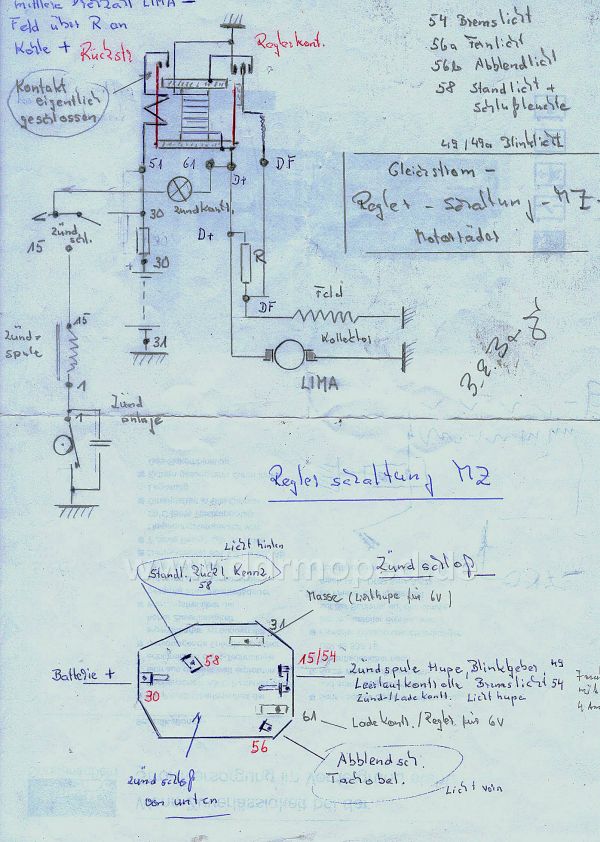 mittlere Drehzahl LIMA –
Feld über R an
Kohle +
Rückstr
Reglerkont.
Kontakt
eigentlich
geschlossen
54 Bremslicht
56a Fernlicht
56b Abblendlicht
58 Standlicht +
Schlußleuchte
49/49a Blinklicht
Gleichstrom –
Regler – Schaltung – MZ –
Motorräder
51
61
D+
DF
Zündkontr.
30
15
Zünd
schl.
D+
30
R
+
DF
Feld
31
15
Zünd-
spule
Kollektor
LIMA
1
1
Zünd
anlage
Regler schaltung MZ
Licht hinten
Zündschloß
Standl., Rückl. Kennz
58
Masse (Lichthupe für 6V)
31
58
15/54
Batterie +
30
Zündspule Hupe, Blinkgeber 49
Leerlaufkontrolle Bremslicht 54
Zünd-/Ladekontr. Lichthupe
61 Ladekontr./Regler für 6V
56
Zündschloß
von unten
Abblendsch.
Tachobel.
Licht vorn